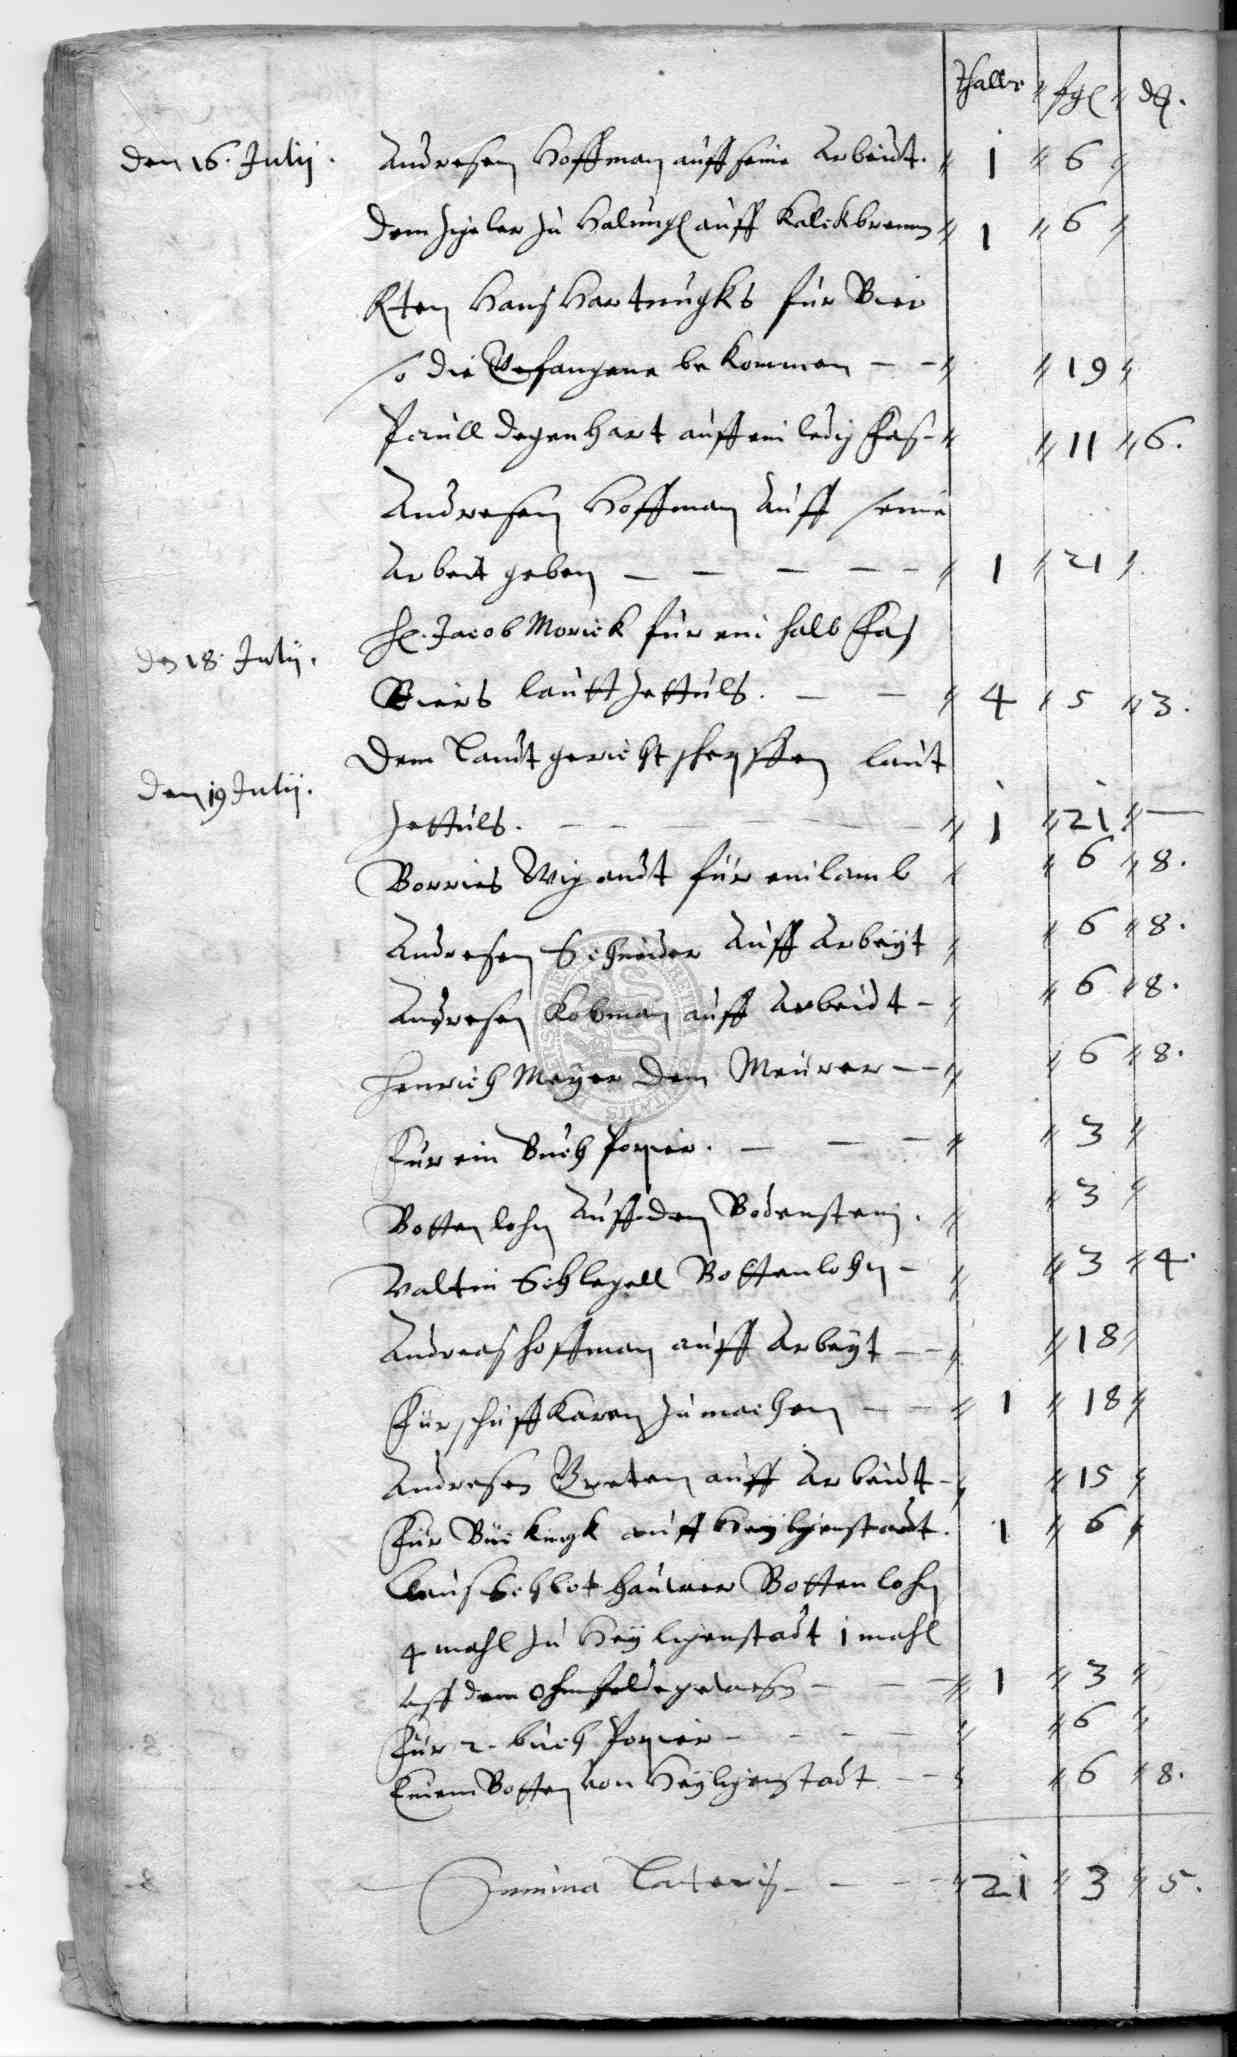 Thaller // sgl // d₰.
Den 16. Julij. Andresen Hoffman auff seine Arbeidt. // 1 // 6 //
Dem Zigeler zu Halungl auff Kalckbrennen // 1 // 6 //
Hans Hartungks für Bier
so die Gefangene bekommen — — // // 19 //
Paull Degenhart auff ein ledig Fas — // // 11 // 6.
Andresen Hoffman Auff seine
Arbeit geben — — — — — // 1 // 21 //
Den 18. Julij. H. Jacob Morick für ein halb Fas
Biers lautt Zettuls. — — // 4 // 5 // 3.
Den 19 Julij. Dem Landtgericht schepffen laut
Zettuls. — — — — — // 1 // 21 // —
Borries Wigandt für ein lamb // // 6 // 8.
Andresen Schneider Auff Arbeyt // // 6 // 8.
Andresen Kobman auff Arbeidt — // // 6 // 8.
Henrich Meyer Dem Meurer — // // 6 // 8.
Für ein Buch Papier. — — — // // 3 //
Botten lohn Auff dem Bodenstein. // // 3 //
Valtin Schlegell Bottenlohn — // // 3 // 4.
Andreas Hoffman auff Arbeyt — // // 18 //
Für schuff Karen zu machen — — // 1 // 18 //
Andresen Greten auff Arbeidt — // // 15 //
Für Bückingk auff Heyligenstadt. 1 // 6 //
Claus Schlothauwer Botten lohn
4 mahl zu Heyligenstadt 1 mahl
uff dem Ohmfelde gewesen — — // 1 // 3 //
Für 2. buch Papier — — — — // // 6 //
Einem Botten von Heyligenstadt — // // 6 // 8.
Summa Lateris — — — // 21 // 3 // 5.